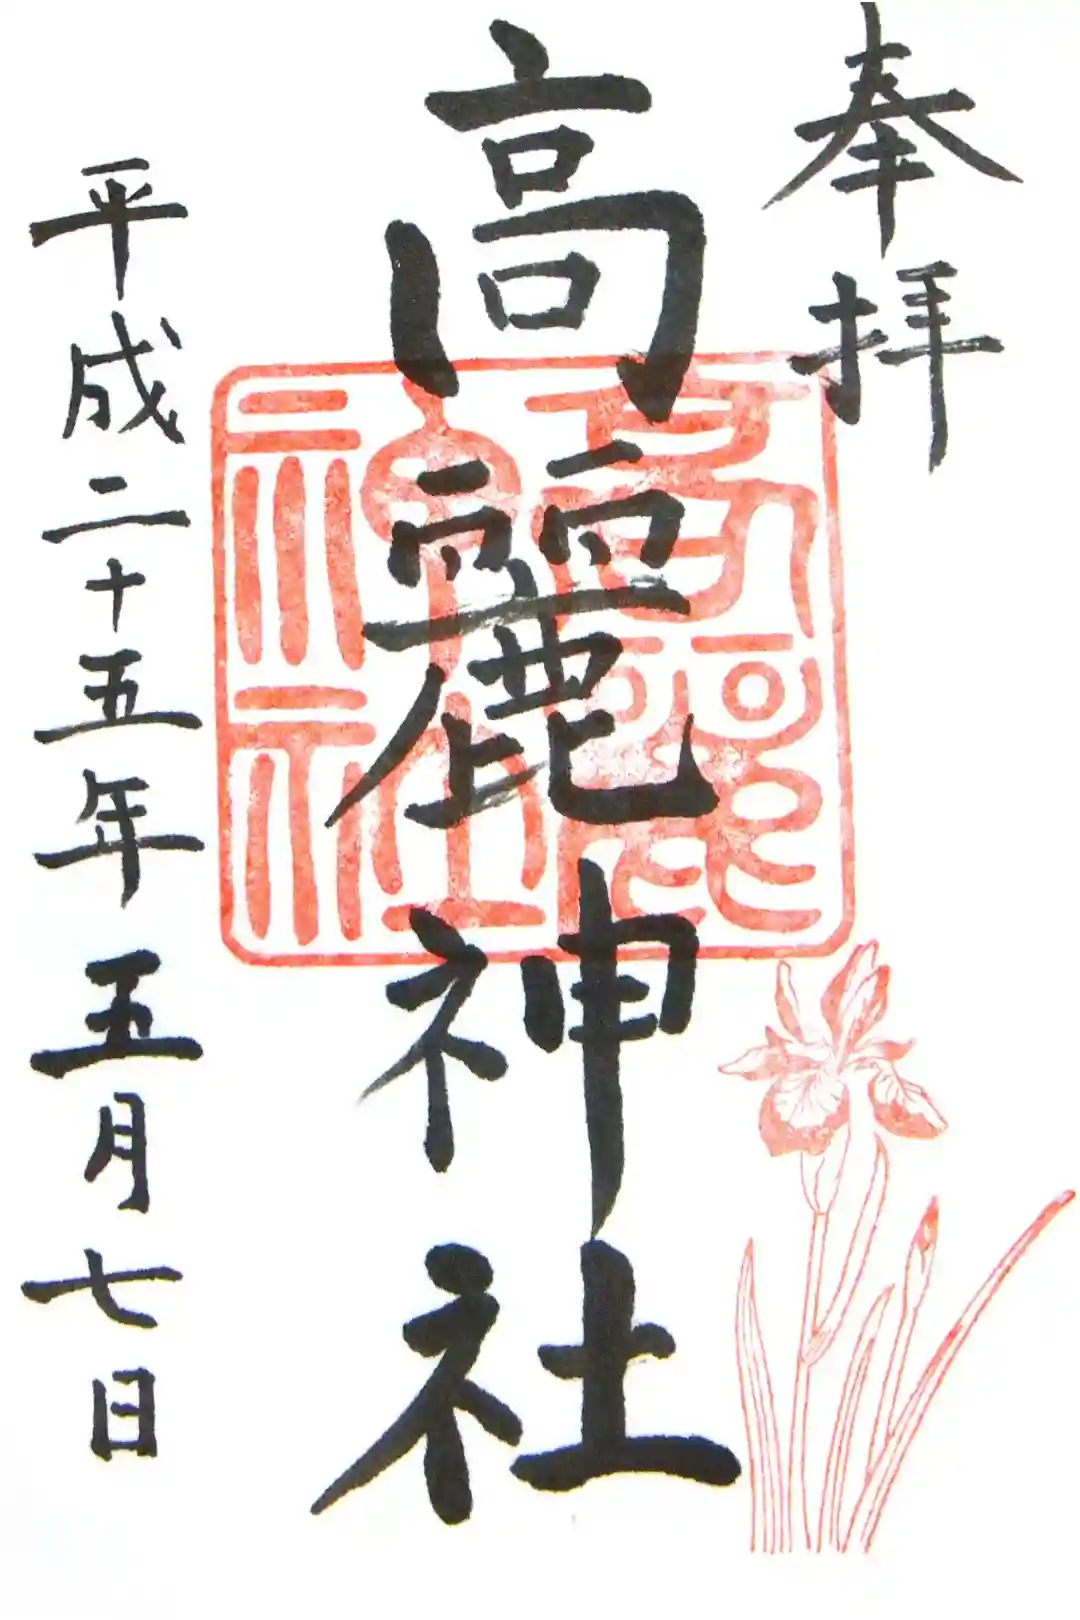 奉拝
高麗神社
高麗神社
平成二十五年五月七日